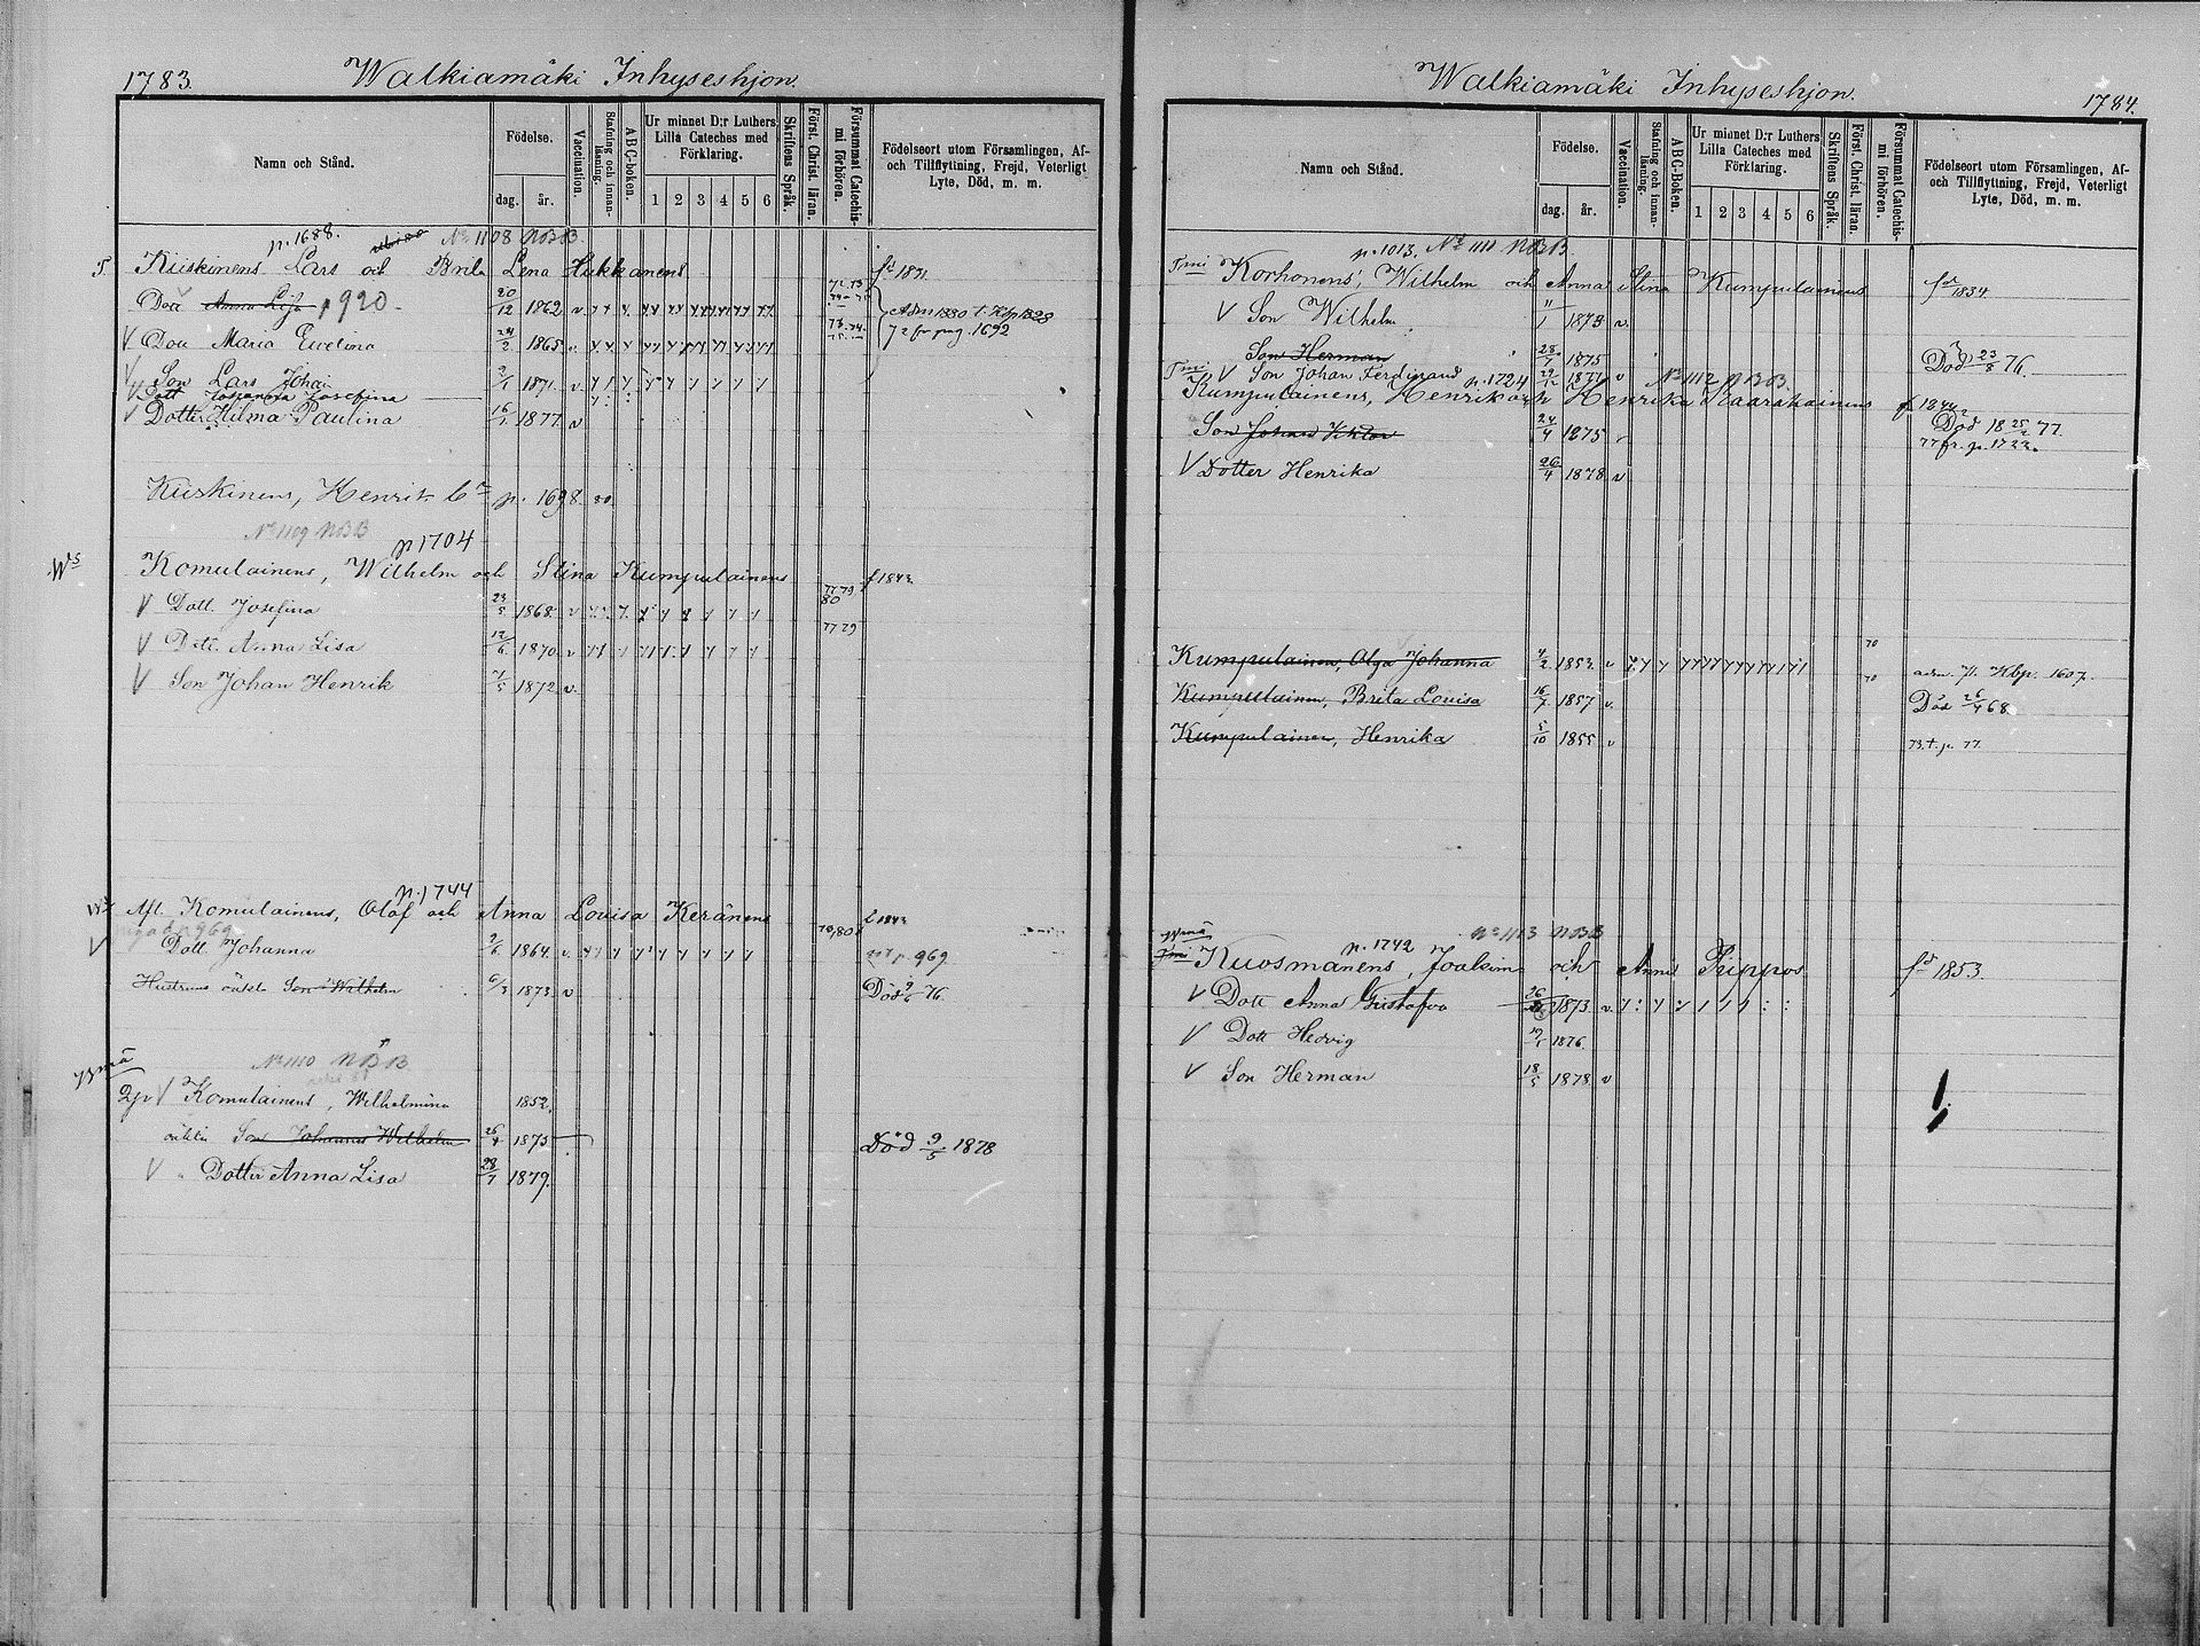 1783.
Walkiamäki Inhyseshjon.
Namn och Stånd.
Födelse.
dag.
år.
Vaccination.
Stafning och innan-läsning.
ABC-boken.
Ur minnet D:r Luthers Lilla Cateches med Förklaring.
1 2 3 4 5 6
Skriftens Språk.
Först. Christ. läran.
Försummat Catechis-mi förhören.
Födelseort utom Församlingen, Af-
och Tillflyttning, Frejd, Veterligt
Lyte, Död, m. m.
p. 1688. No 1108 NBB.
Kiiskinens Lars och Brita Lena Hukkanens fd 1831
Dott Anna Lisa p 920 20/12 1862 v Adm 1880 t. Kbp 1328
V Dott Maria Evelina 24/2 1865 v 72 fr pag. 1692
V Son Lars Johan 2/1 1871 v
V Dott Josefina
V Dotter Hilma Paulina 16/1 1877 v
Kiiskinens, Henrik p. 1698
No 1109 NBB
p 1704
Komulainens, Wilhelm och Stina Kumpulainens f 1843
77 79 80
V Dott. Josefina 23/5 1868 v
77 79
V Dott. Anna Lisa 12/6 1870 v
V Son Johan Henrik 7/5 1872 v.
p. 1744
Afl. Komulainens, Olof och Anna Louisa Keränens
V Dott Johanna 9/6 1864 v. p 969
Hustruns oäkta Son Wilhelm 6/3 1873 v Död 9/6 76.
No 1110 NBB
V Komulainens, Wilhelmina 1852.
oäkta Son Johannes Wilhelm 26/4 1875 Död 9/5 1878
V " Dotter Anna Lisa 28/1 1879.
Walkiamäki Inhyseshjon.
1784.
Namn och Stånd.
Födelse.
dag.
år.
Vaccination.
Stafning och innan-läsning.
ABC-Boken.
Ur minnet D:r Luthers Lilla Cateches med Förklaring.
1 2 3 4 5 6
Skriftens Språk.
Först. Christ. läran.
Försummat Catechis-mi förhören.
Födelseort utom Församlingen, Af-
och Tillflyttning, Frejd, Veterligt
Lyte, Död, m. m.
p. 1013. No 1111 NBB.
Korhonens, Wilhelm och Anna Stina Kumpulainens fd 1834
V Son Wilhelm 11/1 1873 v.
Son Herman 28/7 1875 Död 23/8 76.
V Son Johan Ferdinand 29/12 1877 v
p. 1724 No 1112 NBB.
Kumpulainens, Henrik och Henrika Kaarakainens
Son Johan Viktor 24/4 1875 Död 18 25/2 77.
77 fr. p. 1722.
V Dotter Henrika 26/4 1878 v
Kumpulainen, Olga Johanna 4/2 1853 v 70 adm. fl. Kbp. 1607.
Kumpulainen, Brita Louisa 16/7 1857 v. 70 Död 26/4 68
Kumpulainen, Henrika 5/10 1855 v 73. t. p. 77
p. 1742 No 1113 NBB
Kuosmanens, Joakim och Anna Piippos fd 1853.
V Dott Anna Gustafva 1873 v.
V Dott Hedvig 1876.
V Son Herman 18/5 1878 v